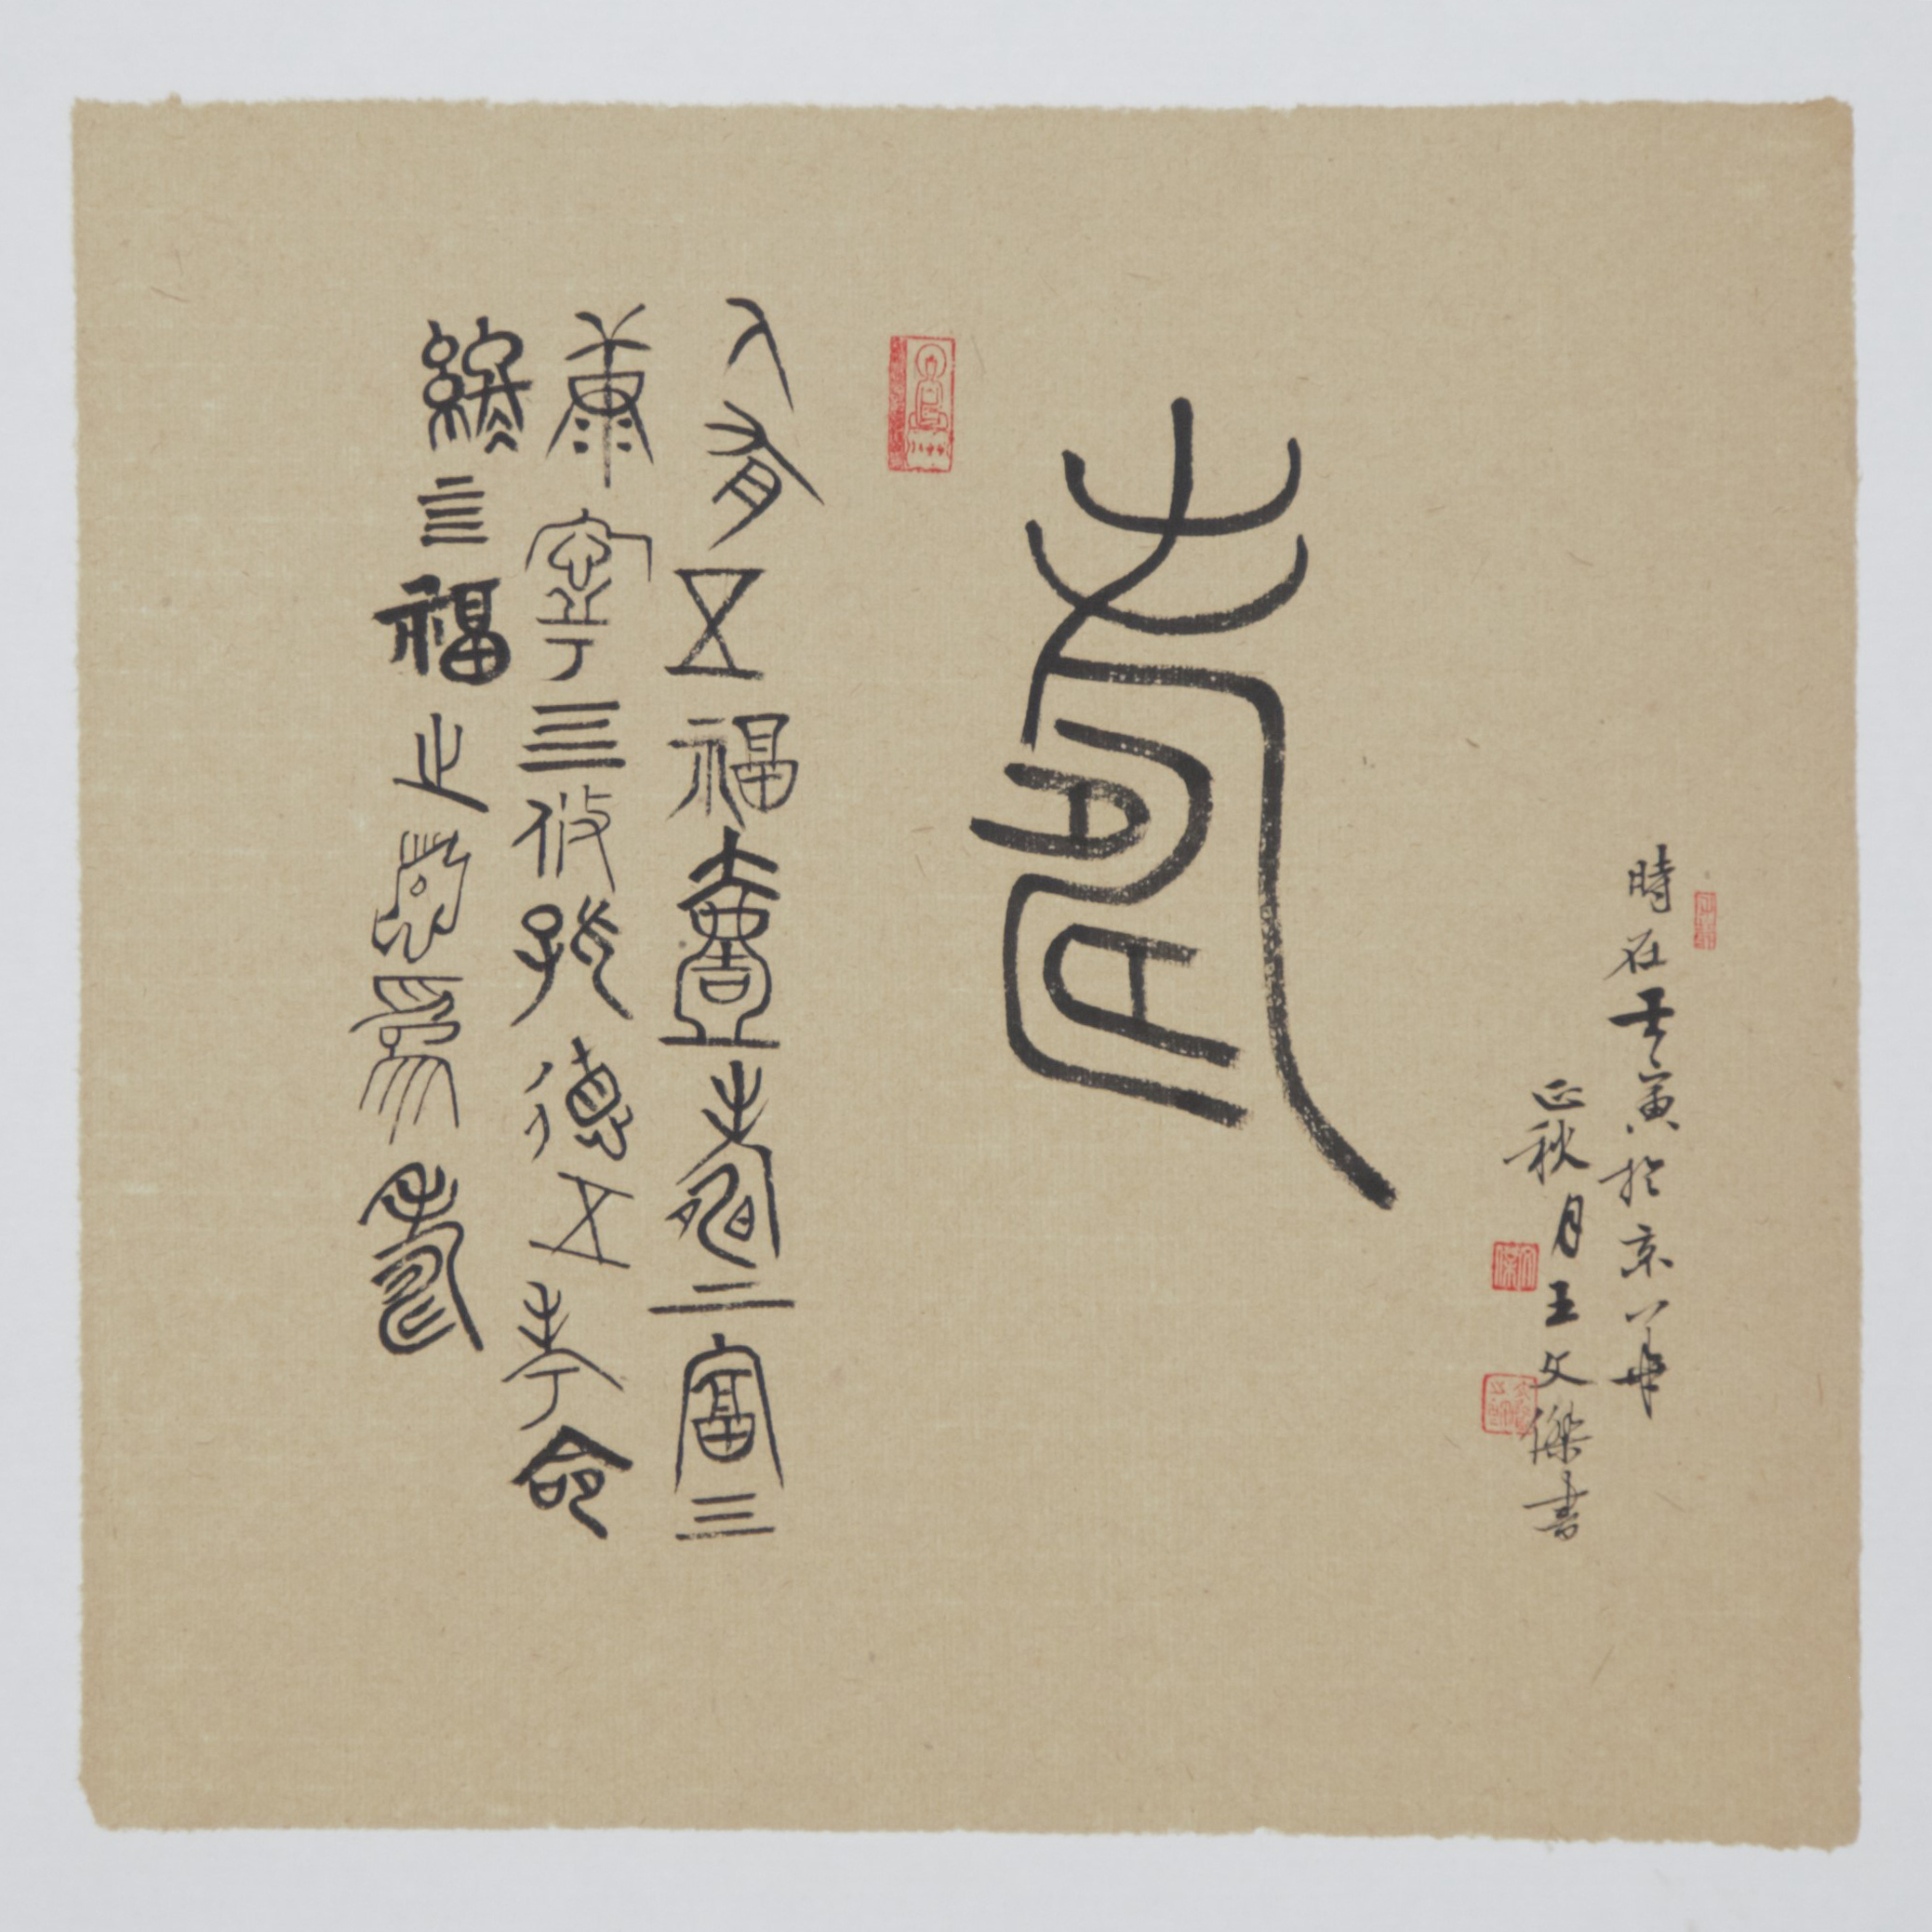 時在壬寅於京華
正秋月王文傑書
壽
人有五福壹壽二富三
康寧四攸好德五考命
言福之為壽